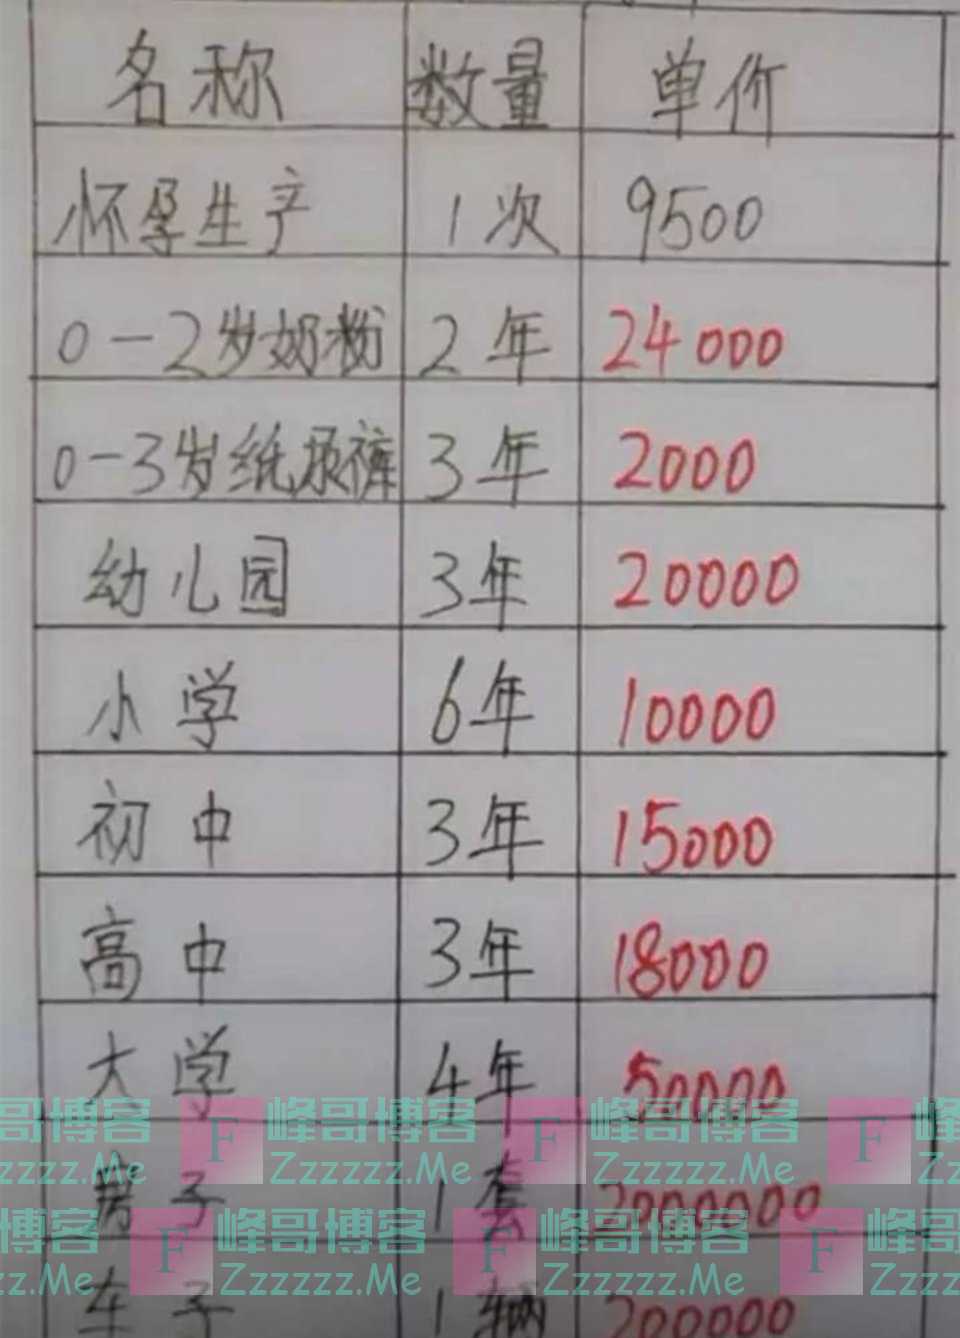 名称 数量 单价
怀孕生产 1次 9500
0-2岁奶粉 2年 24000
0-3岁纸尿裤 3年 2000
幼儿园 3年 20000
小学 6年 10000
初中 3年 15000
高中 3年 18000
大学 4年 50000
峰哥博客 F 峰哥博客 F 峰哥博客 F
zzzzz.Me Zzzzzz.Me Zzzzzz.Me
房子 1套 2000000
峰哥博客 F 峰哥博客 F 峰哥博客 F 峰哥
zz.Me Zzzzzz.Me Zzzzzz.Me Zzzzz
车子 1辆 200000